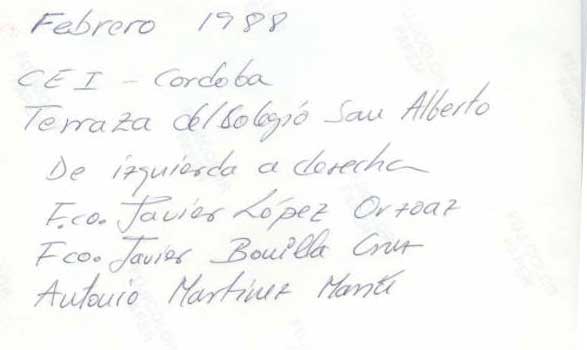 Febrero 1988
CEI - Cordoba
Terraza del Colegio San Alberto
De izquierda a derecha
F.co. Javier López Ortoaz
Fco. Javier Bonilla Cruz
Antonio Martinez